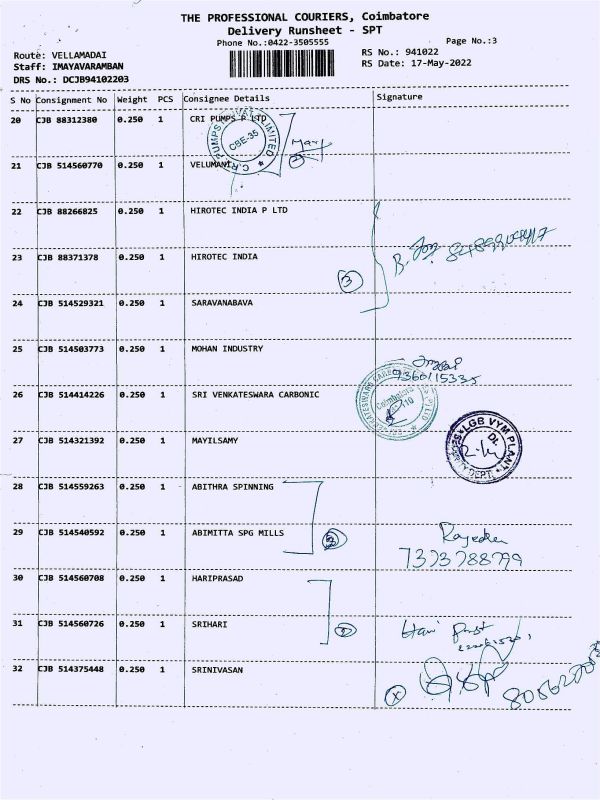 THE PROFESSIONAL COURIERS, Coimbatore
Delivery Runsheet - SPT
Phone No.:0422-3505555
Page No.:3
Route: VELLAMADAI
RS No.: 941022
Staff: IMAYAVARAMBAN
RS Date: 17-May-2022
DRS No.: DCJB94102203
S No Consignment No Weight PCS Consignee Details Signature
20 CJB 88312380 0.250 1 CRI PUMPS P LTD
CBE-35
21 CJB 514560770 0.250 1 VELUMANI
22 CJB 88266825 0.250 1 HIROTEC INDIA P LTD
23 CJB 88371378 0.250 1 HIROTEC INDIA
3
24 CJB 514529321 0.250 1 SARAVANABAVA
25 CJB 514503773 0.250 1 MOHAN INDUSTRY
9360115335
26 CJB 514414226 0.250 1 SRI VENKATESWARA CARBONIC
Coimbatore
LGB VYM PLANT
27 CJB 514321392 0.250 1 MAYILSAMY
28 CJB 514559263 0.250 1 ABITHRA SPINNING
29 CJB 514540592 0.250 1 ABIMITTA SPG MILLS
7373788799
30 CJB 514560708 0.250 1 HARIPRASAD
31 CJB 514560726 0.250 1 SRIHARI
32 CJB 514375448 0.250 1 SRINIVASAN